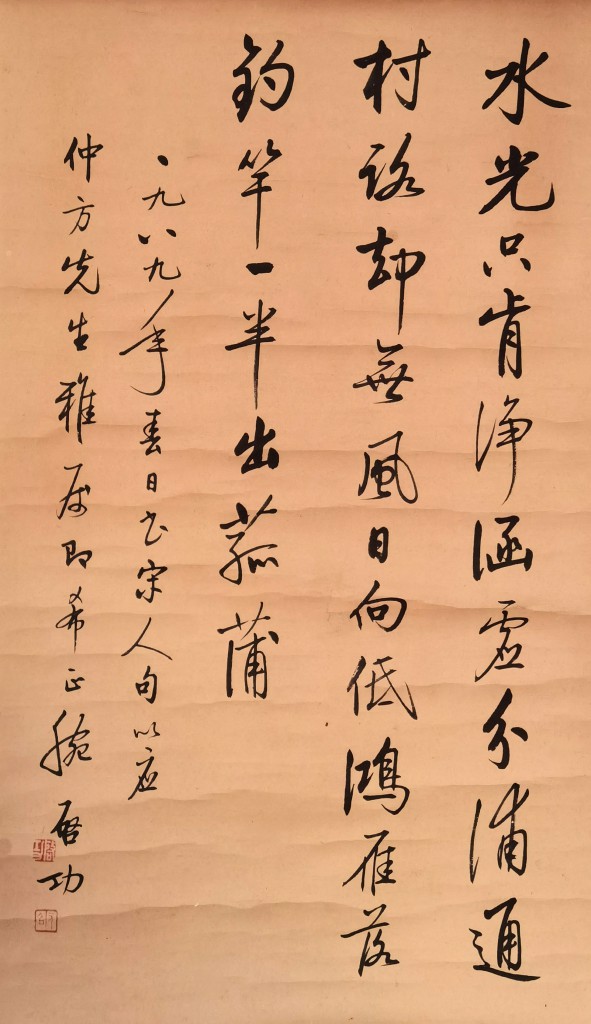 水光只肯净涵虚分浦通
村路却無風日向低鴻雁落
钓竿一半出菰蒲
一九八九年春日书宋人句以应
仲方先生雅属即希正腕
启功